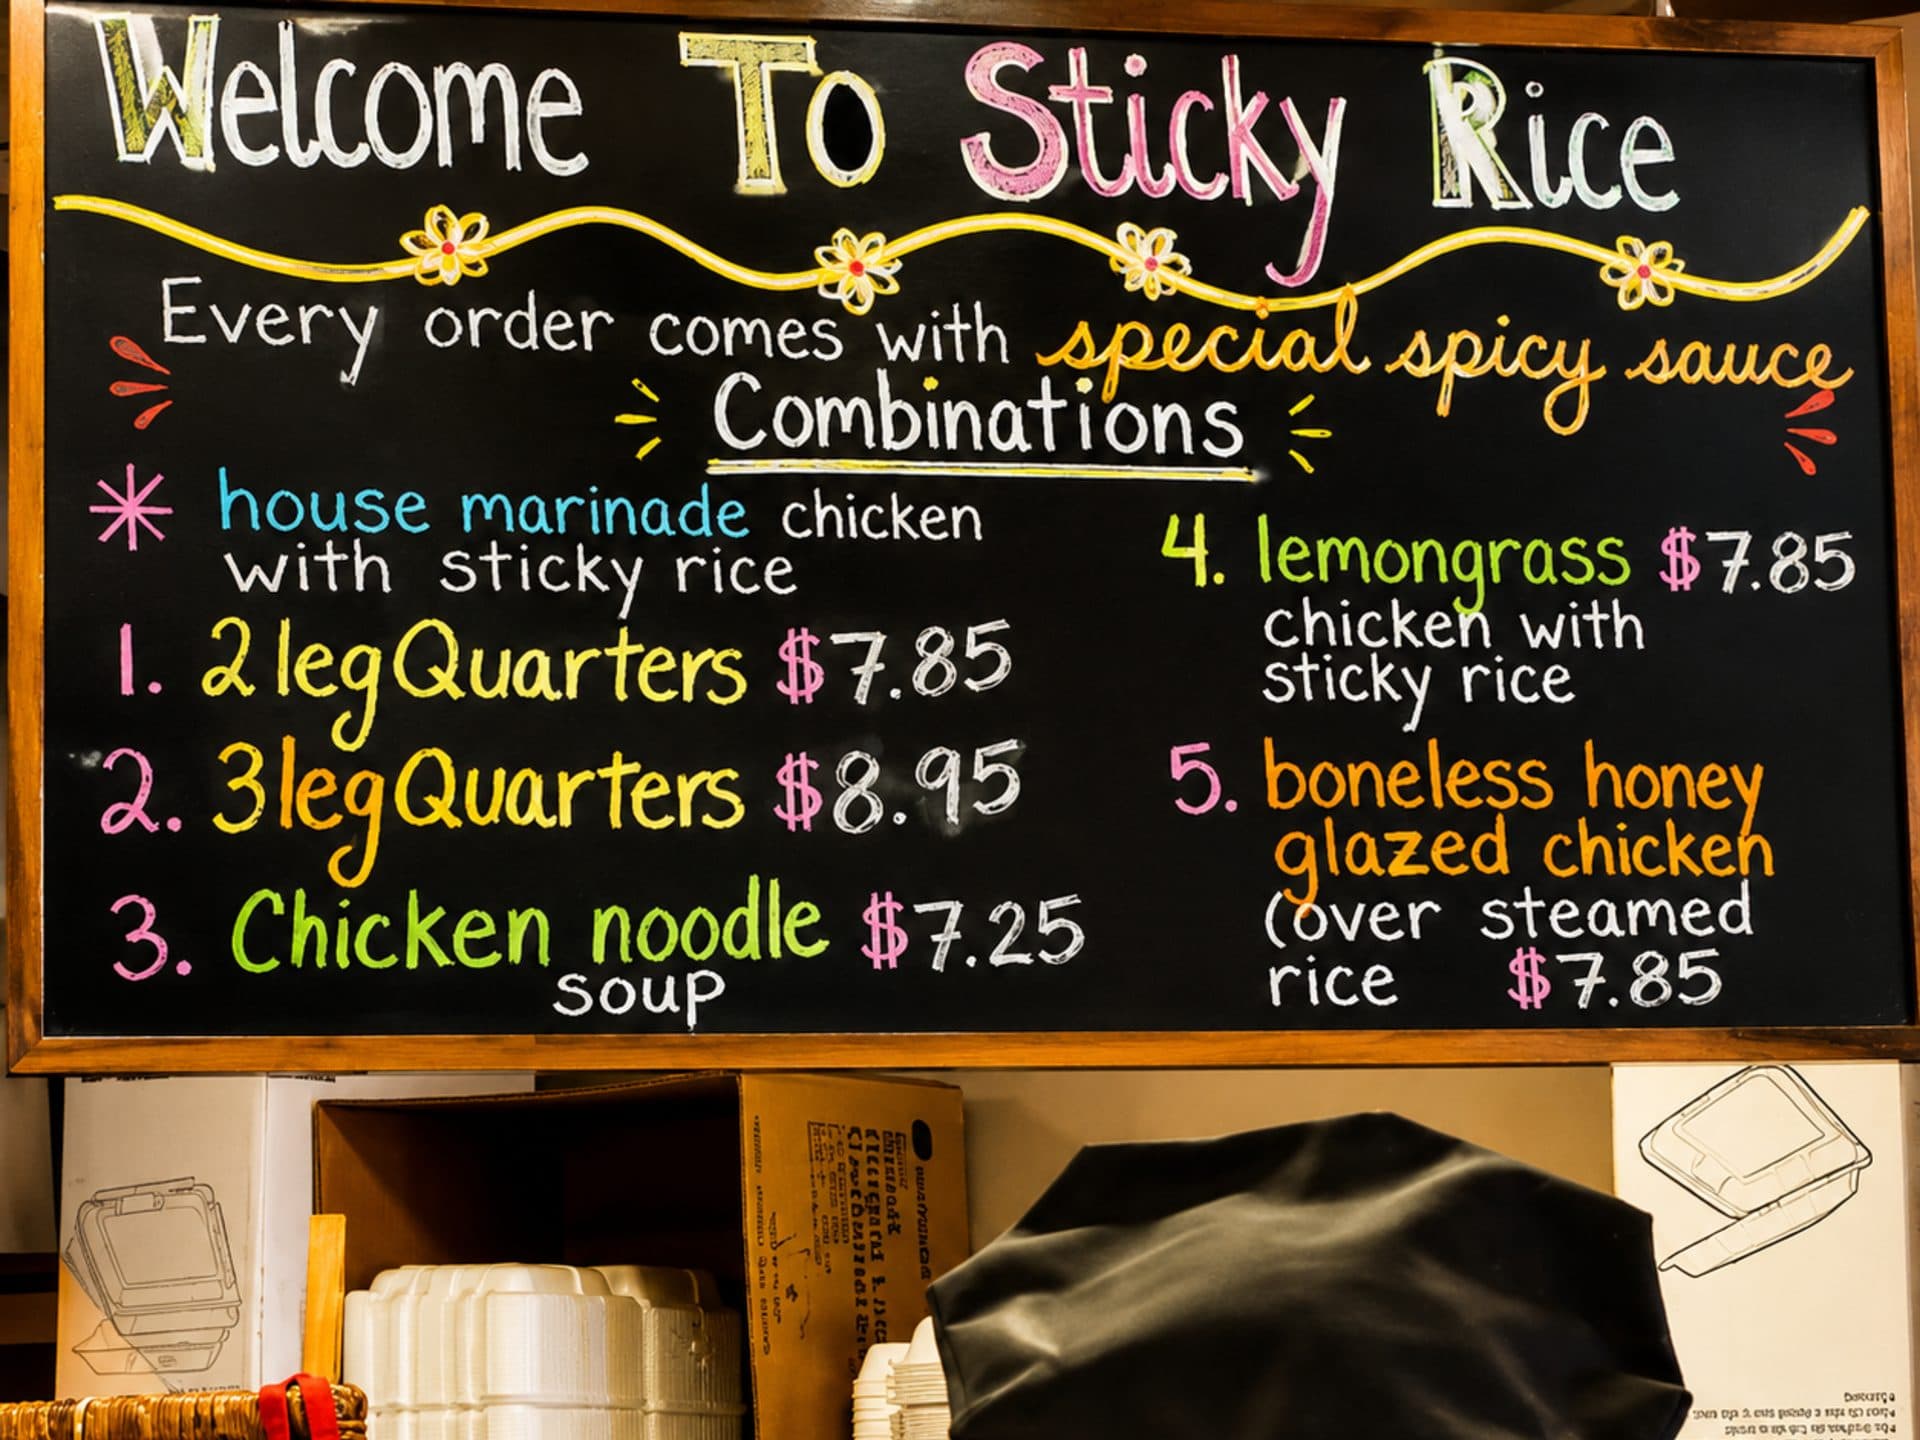 Welcome To Sticky Rice
Every order comes with special spicy sauce
Combinations
* house marinade chicken
with sticky rice
1. 2 leg Quarters $7.85
2. 3 leg Quarters $8.95
3. Chicken noodle $7.25
soup
4. lemongrass $7.85
chicken with
sticky rice
5. boneless honey
glazed chicken
(over steamed
rice $7.85